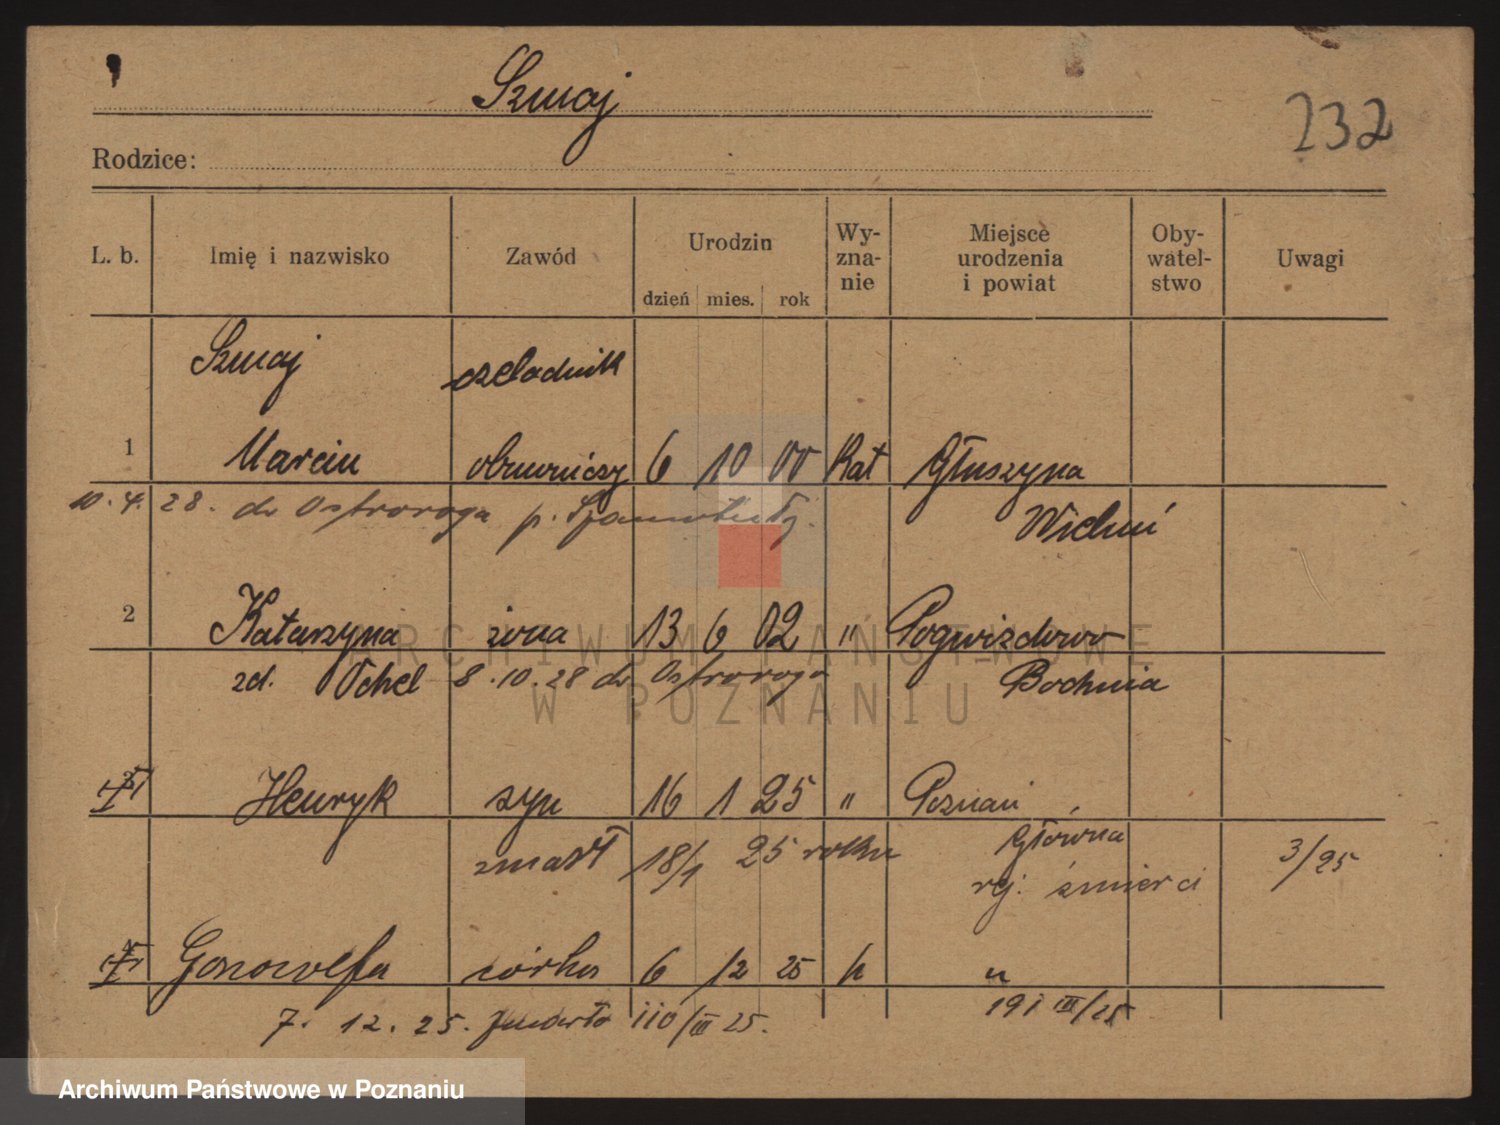 Szmaj
232
Rodzice:
L. b. Imię i nazwisko Zawód Urodzin dzień mies. rok Wy-zna-nie Miejsce urodzenia i powiat Oby-watel-stwo Uwagi
Szmaj czeladnik
1 Marcin obuwniczy 6 10 00 Kat Głuszyna
10. 4. 28. do Ostroroga p. Szamotuły.
Wieluń
2 Katarzyna żona 13 6 02 " Pogwizdowo
zd. Ochel 8. 10. 28 do Ostroroga Bochnia
Henryk syn 16 1 25 " Poznań
Główna
zmarł 18/1 25 roku rej: śmierci 3/25
córka 6 12 25 " "
7. 12. 25. zmarła 110/III 25. 191 III/25
ARCHIWUM PAŃSTWOWE
W POZNANIU
Archiwum Państwowe w Poznaniu